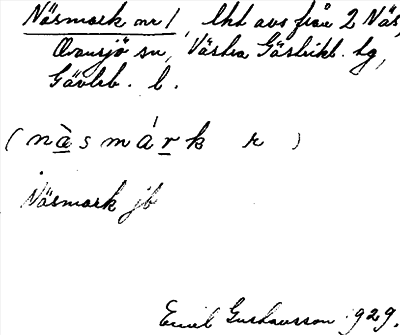 Näsmark nr 1, lht avs från 2 Näs,
Ovansjö sn, Västra Gästrikl. tg,
Gävleb. l.
(nàsmárk r)
Näsmark jb
Emil Gustavsson 1929.